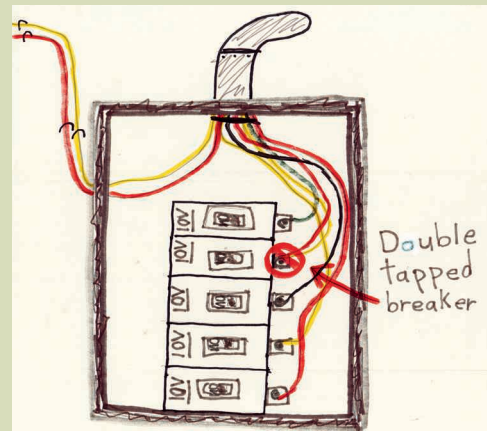 10V
10V
10V
10V
10V
Double
tapped
breaker